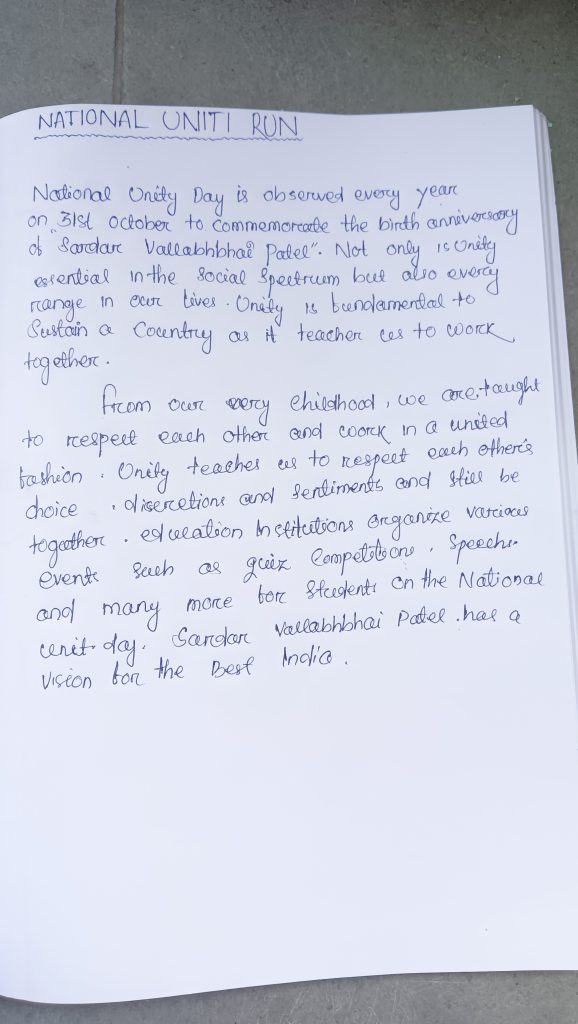 NATIONAL UNITI RUN
National Unity Day is observed every year
on 31st october to commemorate the birth anniversary
of "Sardar Vallabhbhai Patel". Not only is Unity
essential in the social Spectrum but also every
range in our lives. Unity is fundamental to
Sustain a Country as it teacher us to work
together.
From our very childhood, we are, taught
to respect each other and work in a united
fashion. Unity teaches us to respect each other's
choice, discretions and sentiments and still be
together. education Institutions organize various
events such as quiz Competitions, Speechs
and many more for students on the National
unit day. Sardar Vallabhbhai Patel has a
Vision for the Best India.